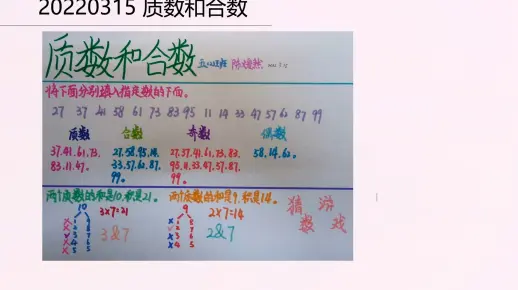 20220315 质数和合数
质数和合数
将下面分别填入指定数的下面。
27 37 41 58 61 73 83 95 11 14 33 47 57 62 87 99
质数 合数 奇数 偶数
37.41.61.73. 27.58.95.14. 27.37.41.61.73.83. 58.14.62。
83.11.47。 33.57.62.87. 95.11.33.47.57.87.
99。 99。
两个质数的和是10,积是21。 两个质数的和是9,积是14。
10 9 猜 游
3×7=21 2×7=14 数 戏
3&7 2&7